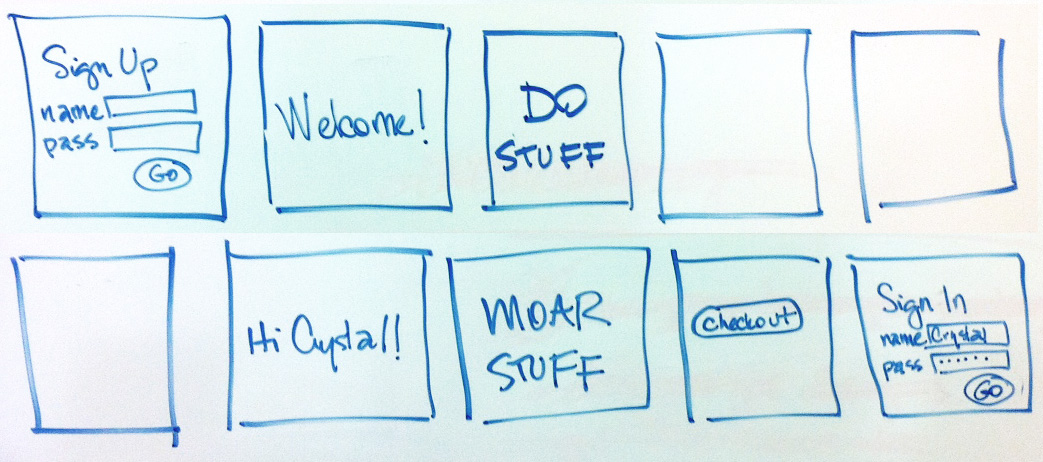 Sign Up
name
pass
GO
Welcome!
DO
STUFF
Hi Crystal!
MOAR
STUFF
checkout
Sign In
name Crystal
pass ......
GO